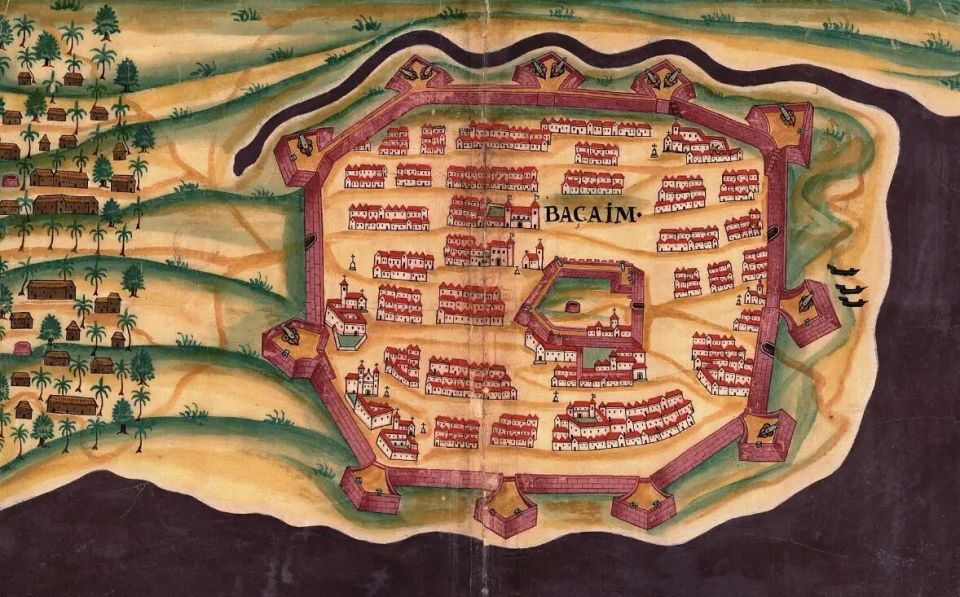 BAÇAÍM·